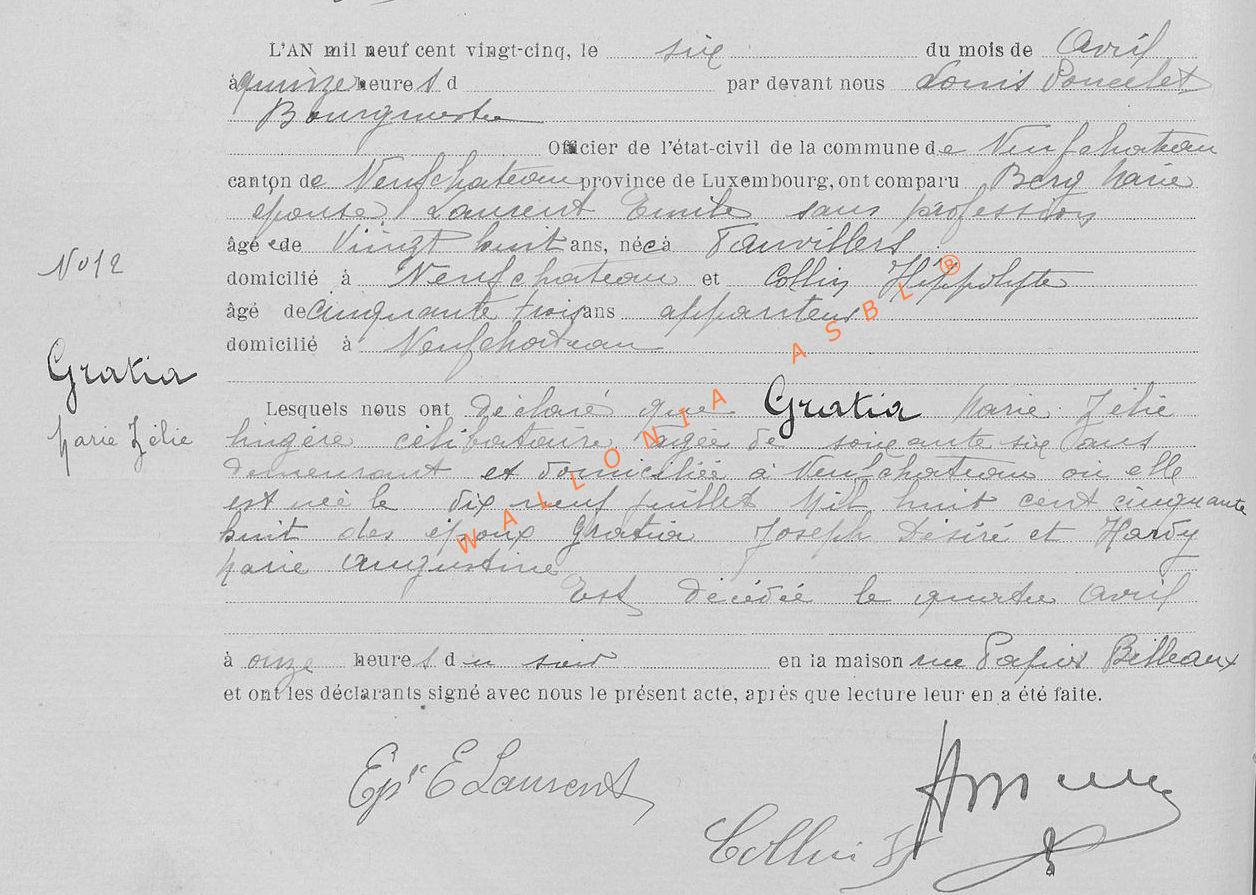 L'AN mil neuf cent vingt-cinq, le six du mois de Avril
à quinze heures d par devant nous Louis Poncelet
Bourgmestre
Officier de l'état-civil de la commune de Neufchateau
canton de Neufchateau province de Luxembourg, ont comparu Berg Marie
épouse Laurent Emile sans profession
âgée de Vingt huit ans, née à Fauvillers
No 12
domicilié à Neufchateau et Collin Hippolyte
âgé de cinquante trois ans appariteur
domicilié à Neufchateau
Gratia
Marie Zélie
Lesquels nous ont déclaré que Gratia Marie Zélie
lingère célibataire âgée de soixante six ans
demeurant et domiciliée à Neufchateau où elle
est née le dix neuf juillet Mil huit cent cinquante
huit des époux Gratia Joseph Désiré et Hardy
Marie Augustine
Est décédée le quatre Avril
à onze heures du soir en la maison rue Befleaux
et ont les déclarants signé avec nous le présent acte, après que lecture leur en a été faite.
Epse E Laurent
Collin H
WALLONIA ASBL ®